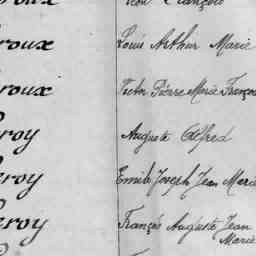 roux Louis Arthur Marie
roux Victor Pierre Marie François
roy Auguste Alfred
eroy Emile Joseph Jean Marie
eroy François Auguste Jean
Marie